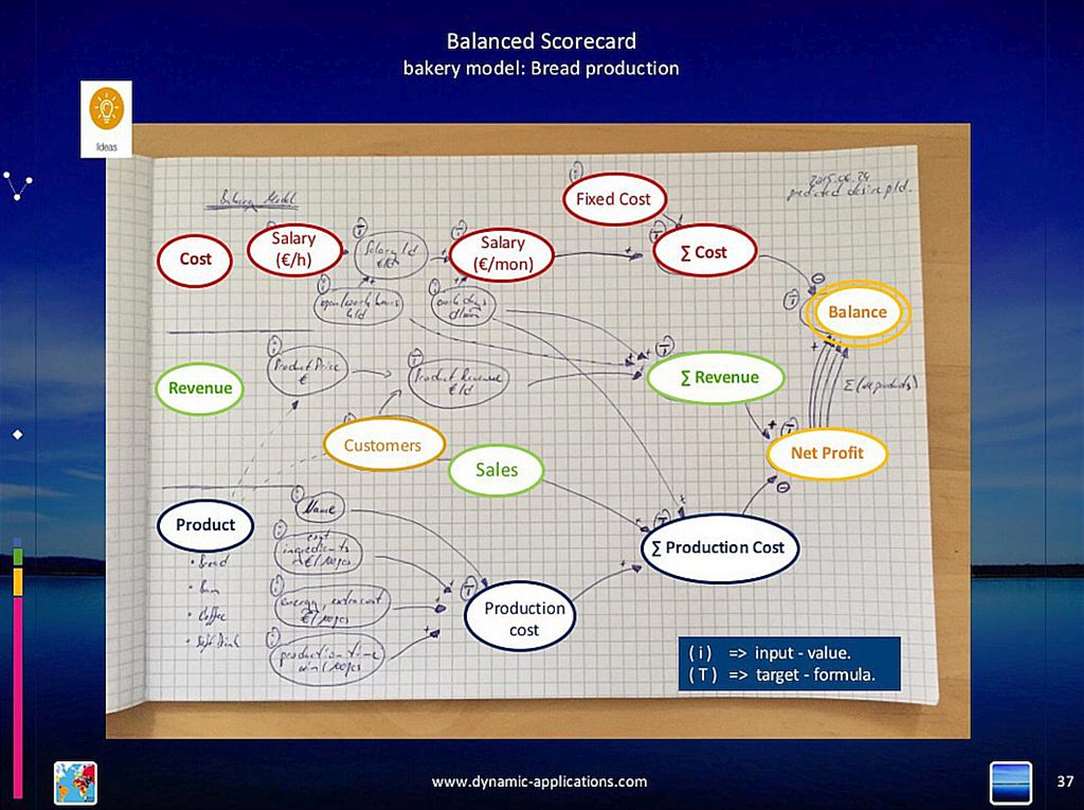 Balanced Scorecard
bakery model: Bread production
Ideas
Bakery Model
2015.06.24
Fixed Cost
Cost
Salary
(€/h)
Salary/d
Salary
(€/mon)
∑ Cost
open/work hours
h/d
work days
d/mon
Balance
Product Price
€
Product Revenue
€/d
∑ Revenue
Revenue
Customers
Sales
Net Profit
Product
Name
cost
ingredients
energy, extra cost
production time
min/100pcs
• Bread
• Bun
• Coffee
• Soft Drink
∑ Production Cost
Production
cost
( i ) => input - value.
( T ) => target - formula.
www.dynamic-applications.com
37